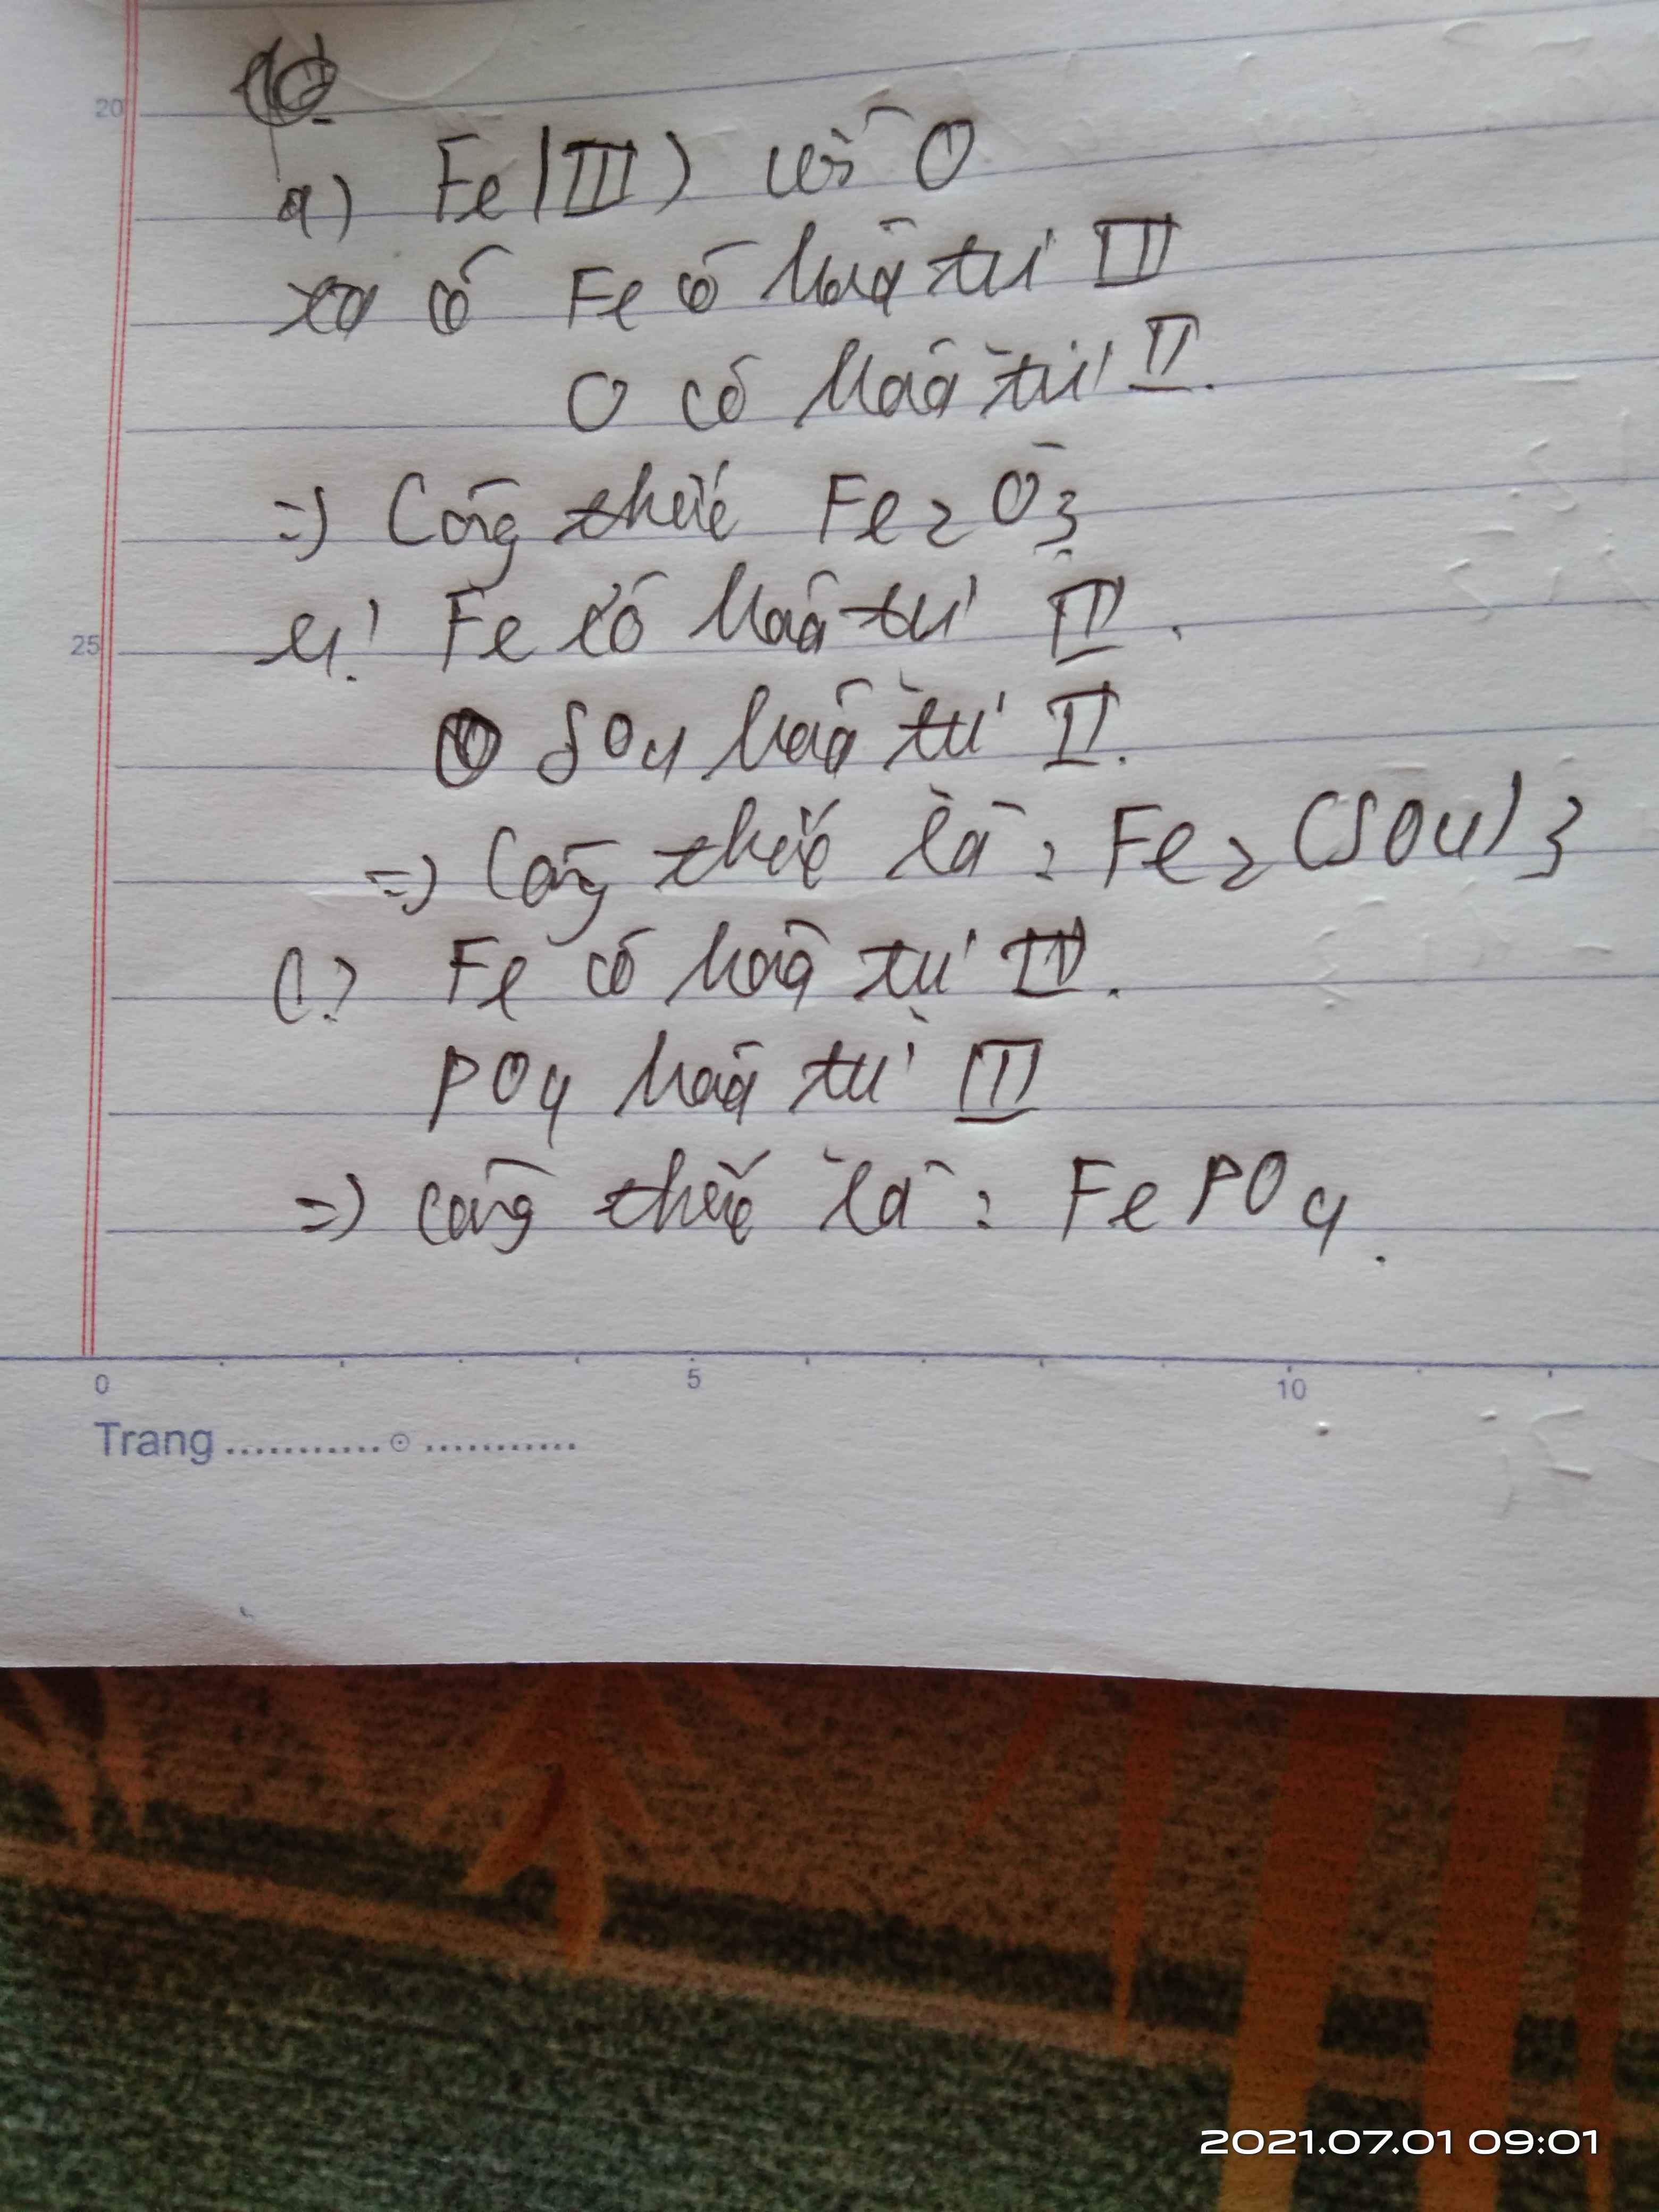 20
a) Fe(III) với O
ta có Fe có hoá trị III
O có hoá trị II.
=) Công thức Fe2O3
25
Fe có hoá trị III.
SO4 hoá trị II.
=) Công thức là: Fe2(SO4)3
c) Fe có hoá trị III.
PO4 hoá trị III
=) Công thức là: FePO4.
0 5 10
Trang
2021.07.01 09:01